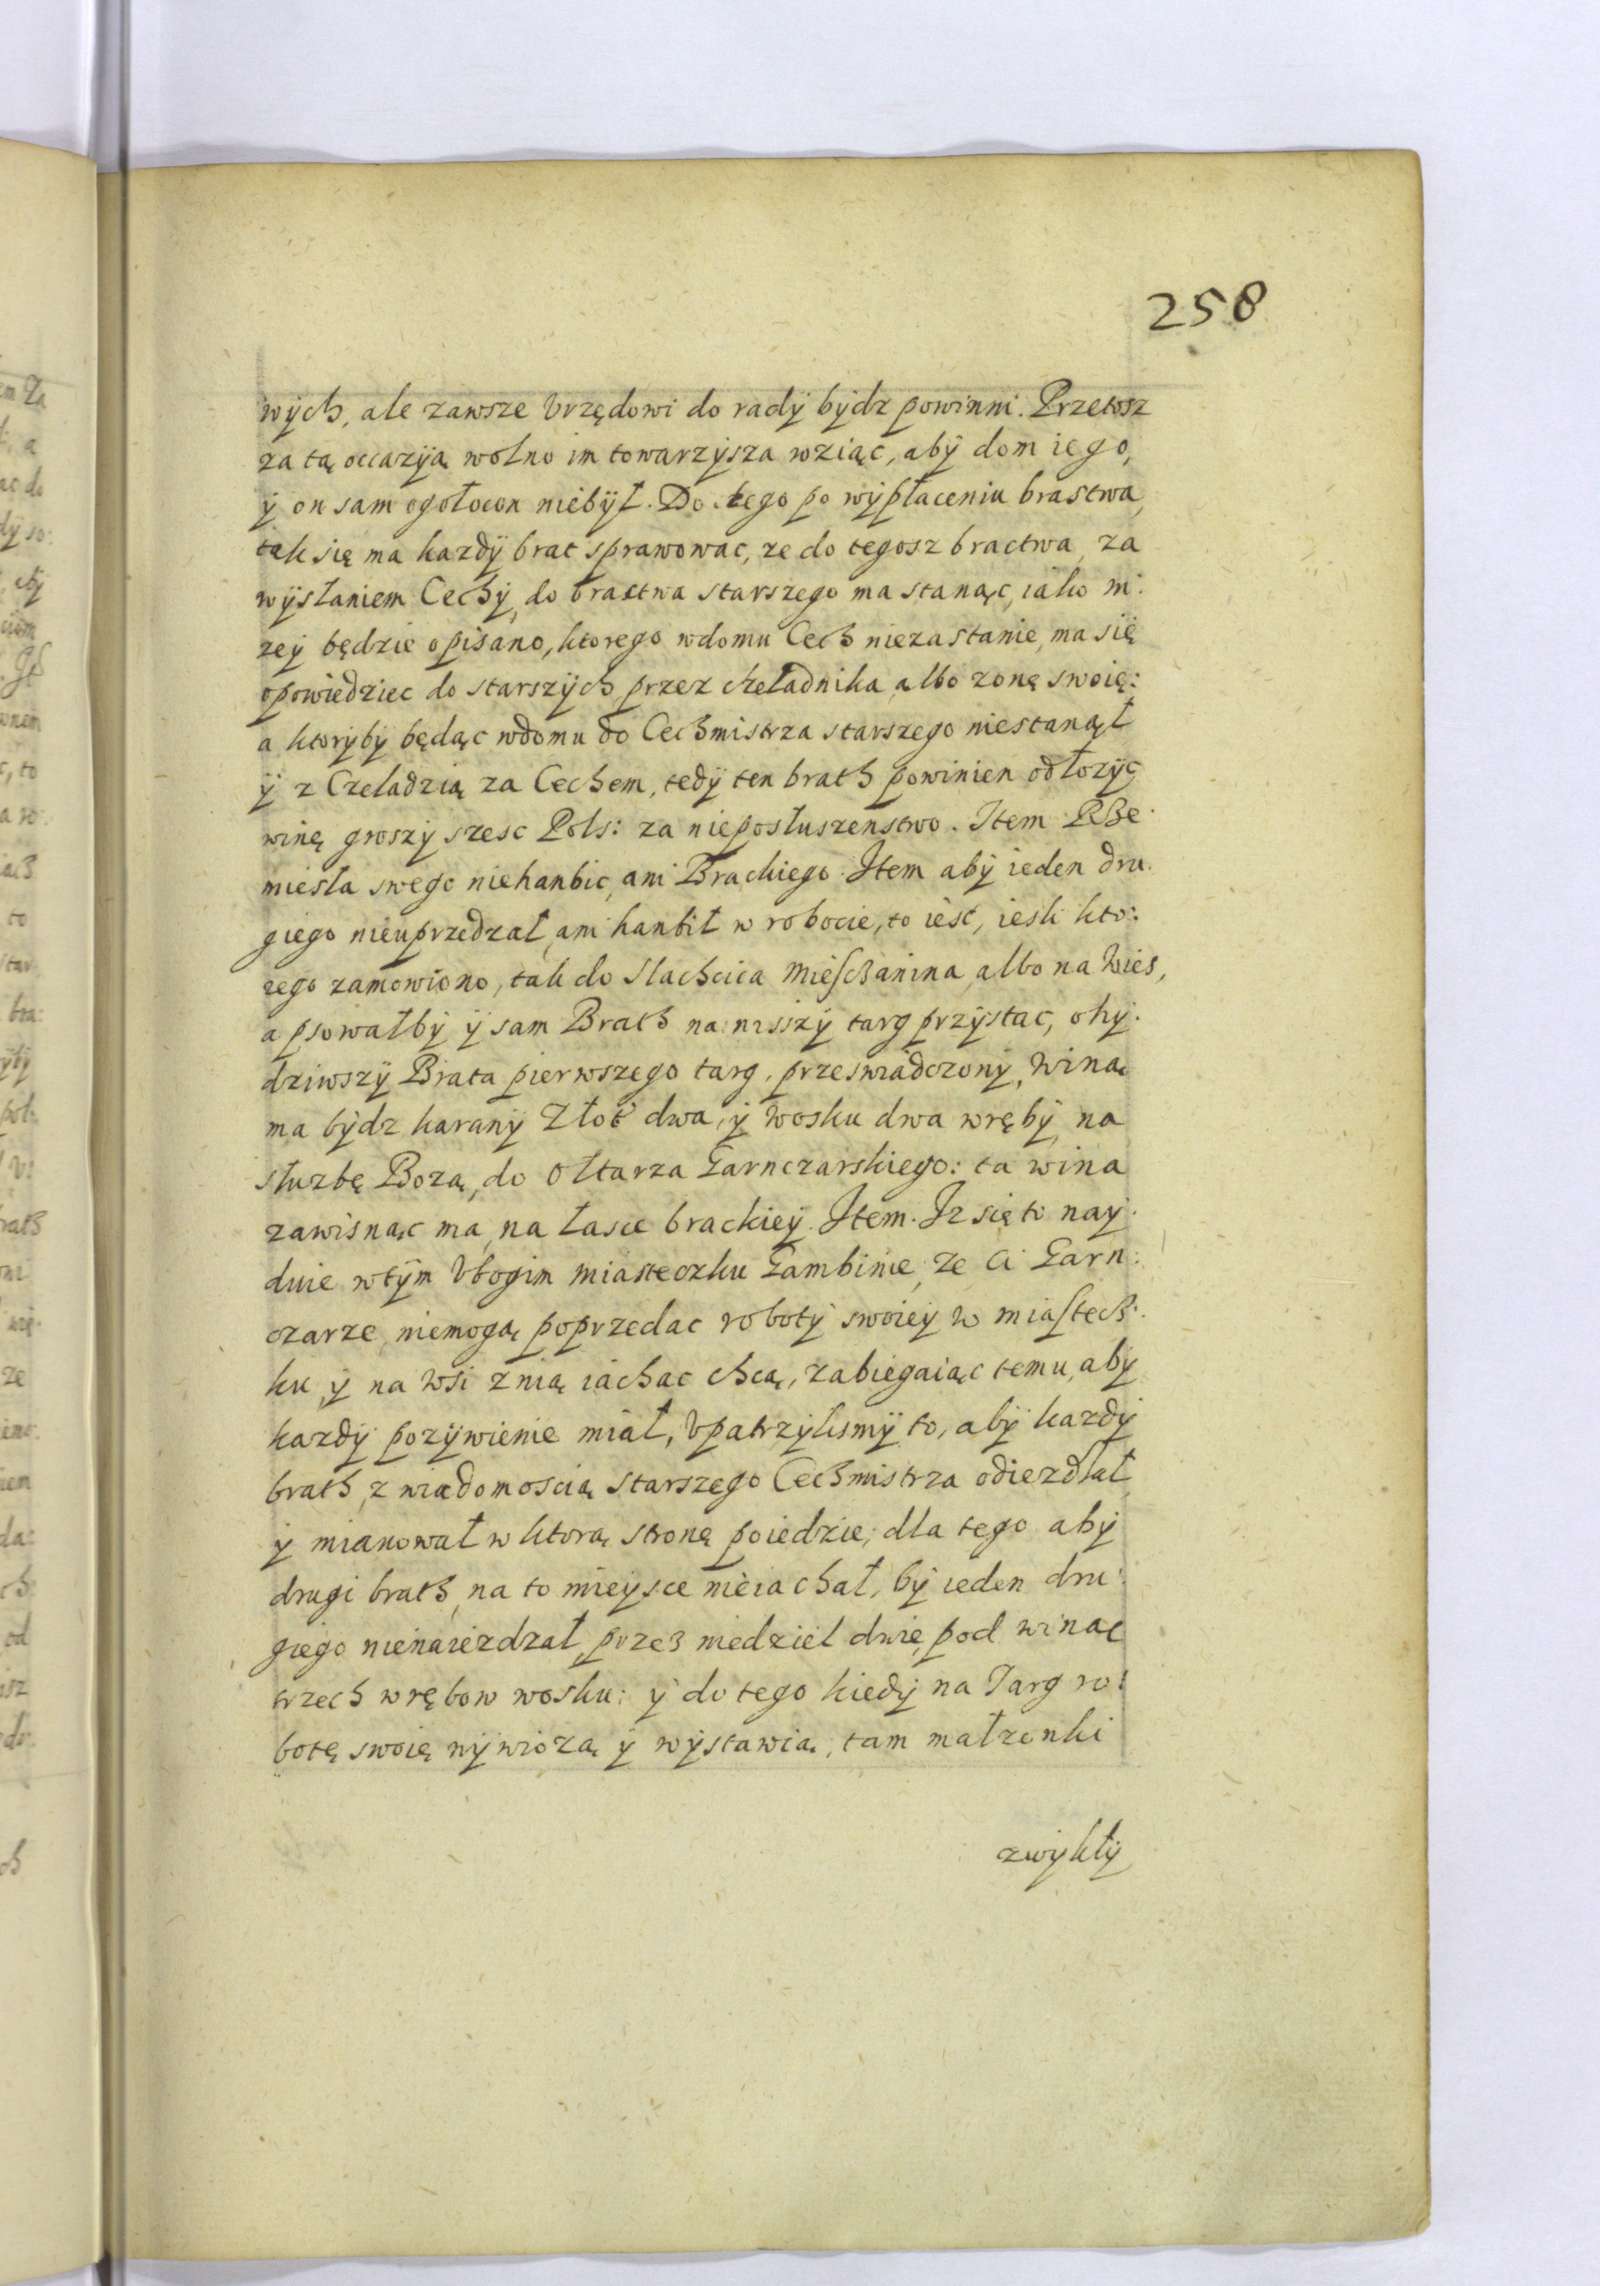 258
wych, ale zawsze Vrzędowi do rady bydz powinni. Przetosz
za tą occazyą wolno im towarzysza wziąc, aby dom iego,
y on sam ogołocon niebył. Do tego po wypłaceniu brastwa,
tak się ma kazdy brat sprawowac, ze do tegosz bractwa, za
wysłaniem Cechy, do bractwa starszego ma stanąc, iako ni:
zey będzie opisano, ktorego wdomu Cech niezastanie, ma się
opowiedziec do starszych przez czeladnika albo zonę swoię:
a ktoryby będąc wdomu do Cechmistrza starszego niestanął
y z Czeladzią za Cechem, tedy ten brath powinien odłozyc
winę groszy szesc Pols: za nieposłuszenstwo. Item Rze:
miesła swego niehanbic, ani Brackiego. Item aby ieden dru:
giego nieuprzedzał, ani hanbił w robocie, to iest, iesli kto:
rego zamowiono, tak do Slachcica Mieszczanina, albo na Wies,
a psowałby y sam Brath na nisszy targ przystac, ohy:
dziwszy Brata pierwszego targ, przeswiadczony, Winą
ma bydz karany Złot dwa, y Wosku dwa wręby, na
słuzbę Bozą, do Ołtarza Garnczarskiego: ta wina
zawisnąc ma, na łasce brackiey. Item. Iz się to nay:
duie wtym Vbogim miasteczku Gambinie, ze Ci Garn:
czarze, niemogą poprzedac roboty swoiey w miastecz:
ku, y na Wsi znią iachac chcą, zabiegaiąc temu, aby
kazdy pozywienie miał, Vpatrzylismy to, aby kazdy
brath, z wiadomoscią Starszego Cechmistrza odiezdzał
y mianował w ktorą stronę poiedzie, dla tego aby
drugi brath, na to mieysce nieiachał, by ieden dru:
giego nienaiezdzał, przez niedziel dwie, pod winą
trzech wrębow wosku: y do tego kiedy na Targ ro:
botę swoię wywiozą y wystawią, tam małzonki
zwykły